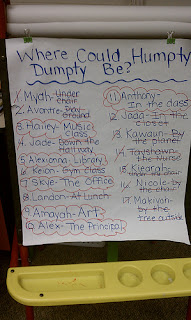 Where Could Humpty
Dumpty Be?
1. Myah- Under
chair
2. Avontre- Play
ground
3. Hailey- Music
Class
4. Jade- Down the
Hallway
5. Alexionna- Library
6. Keion- Gym class
7. Skye- The Office
8. Landon- At Lunch
9. Amayah- Art
10. Alex- The Principal
11. Anthony-
In the class
12. Jada- In the
closet
13. Kawaun- By
the planet
14. Tayshawn-
The Nurse
15. Kiearah-
Under the chair
16. Nicole- By
the chair
17. Makiyon-
by the
tree outside